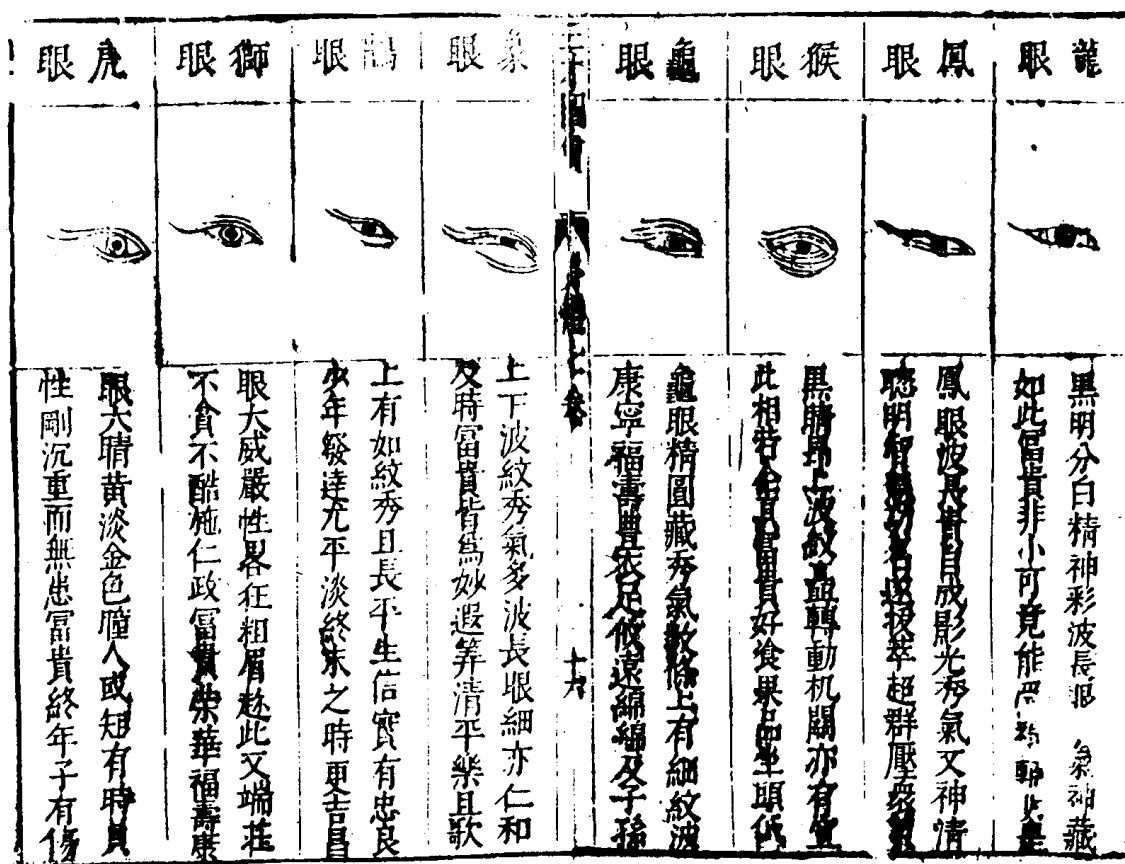 龍眼
黑明分白精神彩波長眼 氣神藏
如此富貴非小可竟能
鳳眼
鳳眼波長貴自成影光秀氣又神清
聰明智 功名 拔萃超群壓眾
猴眼
黑睛昂上波紋 轉動机關亦有宜
此相若全真富貴好食果品坐頭低
龜眼
龜眼精圓藏秀氣數條上有細紋波
康寧福濤豊衣足攸遠綿綿及子孫
身體七卷
十六
象眼
上下波紋秀氣多波長眼細亦仁和
及時富貴皆爲妙遐筭清平樂且歌
鵲眼
上有如紋秀且長平生信實有忠良
少年發達尤平淡終末之時更吉昌
獅眼
眼大威嚴性畧狂粗眉趂此又端莊
不貪不酷施仁政富貴荣華福壽康
虎眼
眼大睛黃淡金色瞳人或短有時員
性剛沉重而無患冨貴終年子有傷